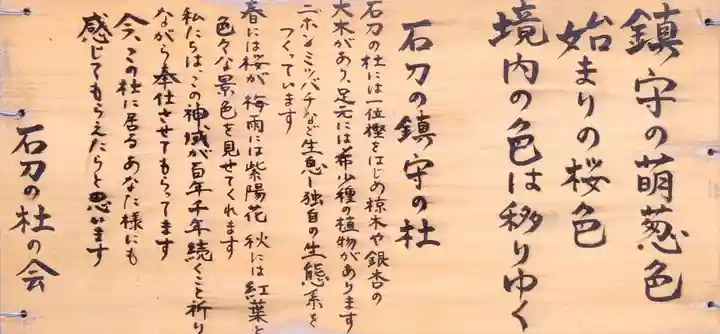 鎮守の萌葱色
始まりの桜色
境内の色は移りゆく
石刀の鎮守の杜
石刀の杜には一位樫をはじめ椋木や銀杏の
大木があり、足元には希少種の植物があります
ニホンミツバチなど生息し独自の生態系を
つくっています
春には桜が 梅雨には紫陽花 秋には紅葉と
色々な景色を見せてくれます
私たちは、この神域が百年千年続くこと祈り
ながら奉仕させてもらってます
今、この杜に居るあなた様にも
感じてもらえたらと思います
石刀の杜の会